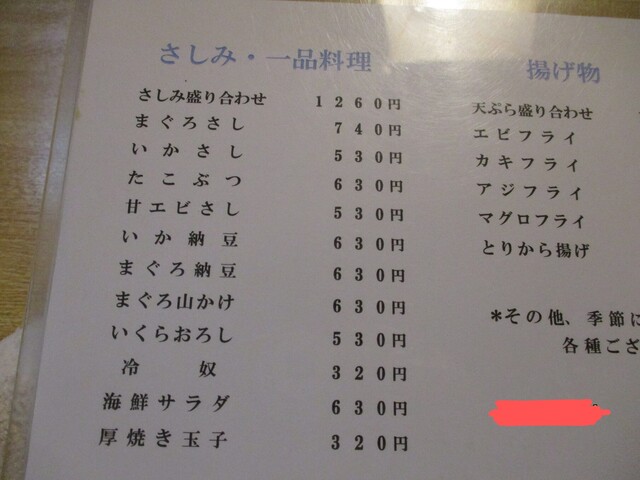 さしみ・一品料理
さしみ盛り合わせ 1260円
まぐろさし 740円
いかさし 530円
たこぶつ 630円
甘エビさし 530円
いか納豆 630円
まぐろ納豆 630円
まぐろ山かけ 630円
いくらおろし 530円
冷奴 320円
海鮮サラダ 630円
厚焼き玉子 320円
揚げ物
天ぷら盛り合わせ
エビフライ
カキフライ
アジフライ
マグロフライ
とりから揚げ
*その他、季節に
各種ござ